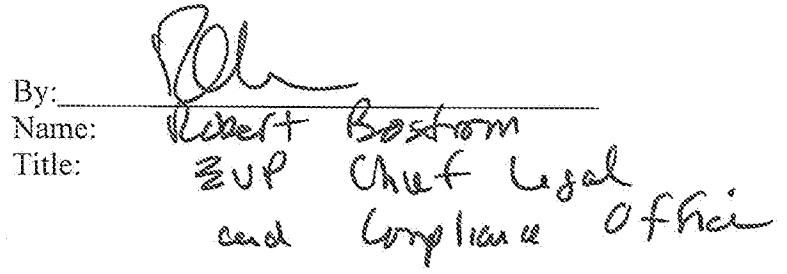 By:
Name: Robert Bostrom
Title: EVP Chief Legal
and Compliance Officer